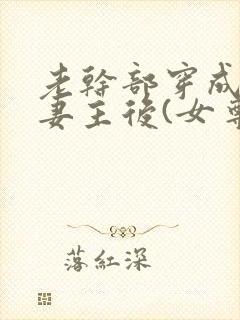 老幹部穿成
妻主後(女尊
落紅深